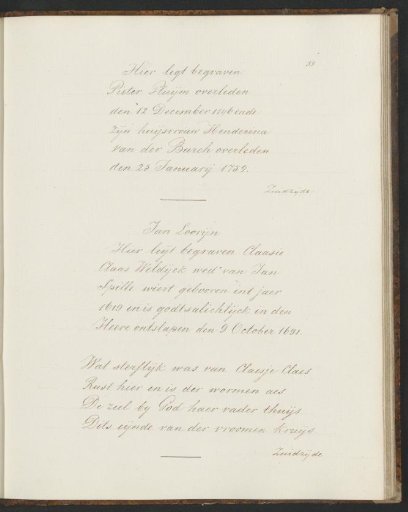 Hier legt begraven
Pieter Kuijm overleden
den 12 December 1746 ende
Zijn huijsvrouw Henderina
van der Burch overleden
den 25 Januarij 1759.
Zuidzijde
Jan
Hier leijt begraven Claasie
Claas Weldijck wed van Jan
wiert geboren int jaer
1619 en is godtsalichlijck in den
Heere ontslapen den 9 October 1691.
Wat sterflijk was van Claesje Claes
Rust hier en is der wormen aes
De zeel bij God haer vader thuijs
Dits eijnde van der vroomen kruijs
Zuidzijde